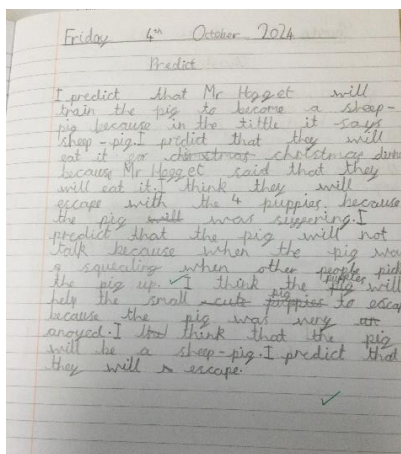 Friday 4th October 2024
Predict
I predict that Mr Hogget will
train the pig to become a sheep-
pig because in the tittle it says
sheep-pig. I predict that they will
eat it for christmas christmas dinne
because Mr Hogget said that they
will eat it. I think they will
escape with the 4 puppies. because
the pig will was suffering. I
predict that the pig will not
talk because when the pig was
squealing when other people pick
the pig up. I think the puppies will
help the small cute puppies pig to escap
because the pig was very
anoyed. I think that the pig
will be a sheep-pig. I predict that
they will escape.